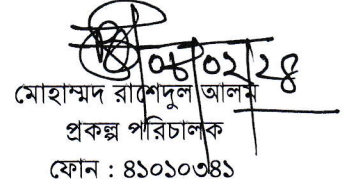 ০৮/০২/২৪
মোহাম্মদ রাশেদুল আলম
প্রকল্প পরিচালক
ফোন : ৪১০১০৩৪১